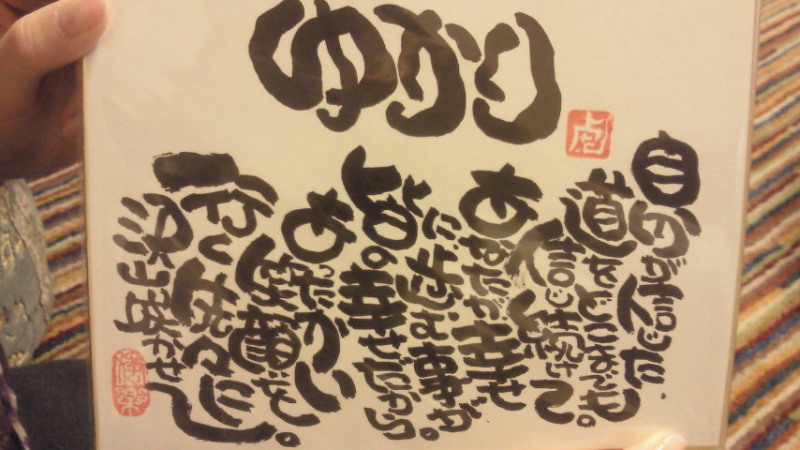 ゆかり
自分が信じた、
道をどこまでも。
信じ続けて
あなたが幸せ
に歩む事が。
皆の幸せだから
あったかい
笑顔を。
行く先々に。
沢山咲かせ